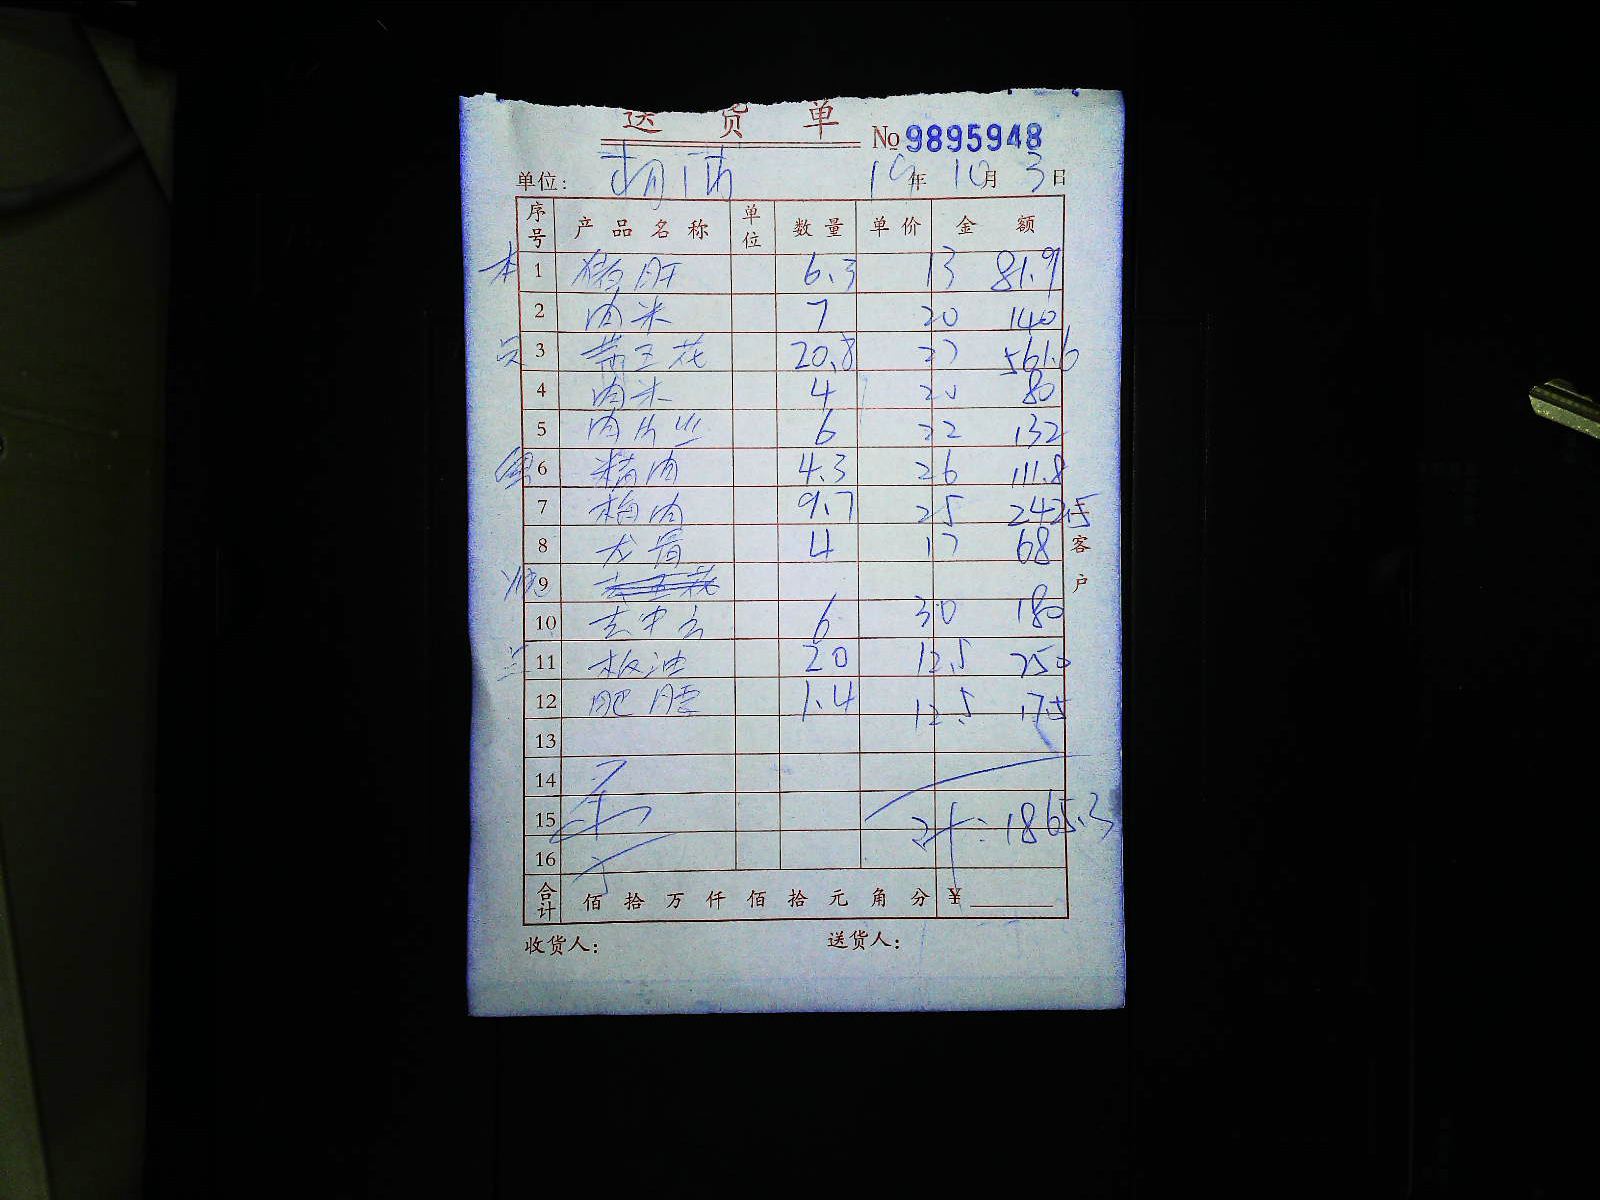 送 货 单
No 9895948
单位: 19年 10月 3日
序号 产品名称 单位 数量 单价 金额
本 1 猪肝 6.3 13 81.9
2 肉米 7 20 140
3 带五花 20.8 27 561.6
4 肉米 4 20 80
5 肉片丝 6 22 132
6 精肉 4.3 26 111.8
7 梅肉 9.7 25 242.5
8 龙骨 4 17 68
9
10 6 30 180
11 板油 20 12.5 250
12 肥膘 1.4 12.5 17.5
13
14
15 计: 1865.3
16
合计 佰 拾 万 仟 佰 拾 元 角 分 ¥
收货人: 送货人:
客户